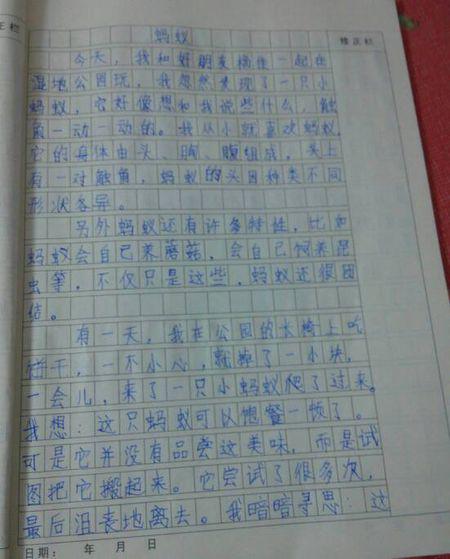 正栏
蚂蚁
修正栏
今天，我和好朋友杨佳一起在
湿地公园玩，我忽然发现了一只小
蚂蚁，它好像想和我说些什么，触
角一动一动的。我从小就喜欢蚂蚁，
它的身体由头、胸、腹组成，头上
有一对触角，蚂蚁的头因种类不同
形状各异。
另外蚂蚁还有许多特性，比如
蚂蚁会自己养蘑菇，会自己饲养昆
虫等，不仅只是这些，蚂蚁还很团
结。
有一天，我在公园的长椅上吃
饼干，一不小心，就掉了一小块，
一会儿，来了一只小蚂蚁爬了过来。
我想：这只蚂蚁可以饱餐一顿了。
可是它并没有品尝这美味，而是试
图把它搬起来。它尝试了很多次，
最后沮丧地离去。我暗暗寻思：这
日期： 年 月 日